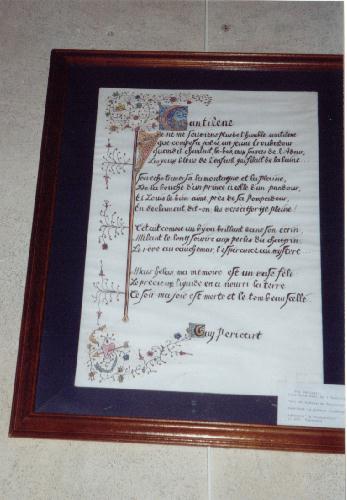 Cantilène
Je ne me souviens plus de l'humble cantilène
Que composa jadis un jeune troubadour
Quand il chantait, là-bas, aux sources de l'Adour,
Les yeux bleus de l'enfant qui filait de la laine.
Son écho traversa la montagne et la plaine,
De la bouche d'un prince à celle d'un pandour,
Et Louis le bien aimé, près de sa Pompadour,
En déclamant dit-on les vers à gorge pleine!
C'était comme un bijou brillant dans son écrin
Mêlant le long sourire aux perles du chagrin
Le rêve au cauchemar, l'espérance au mystère
Mais hélas ma mémoire est un vase fêlé
Le précieux liquide en a nourri la terre
Ce soir ma joie est morte et le tombeau scellé.
Guy Péricart